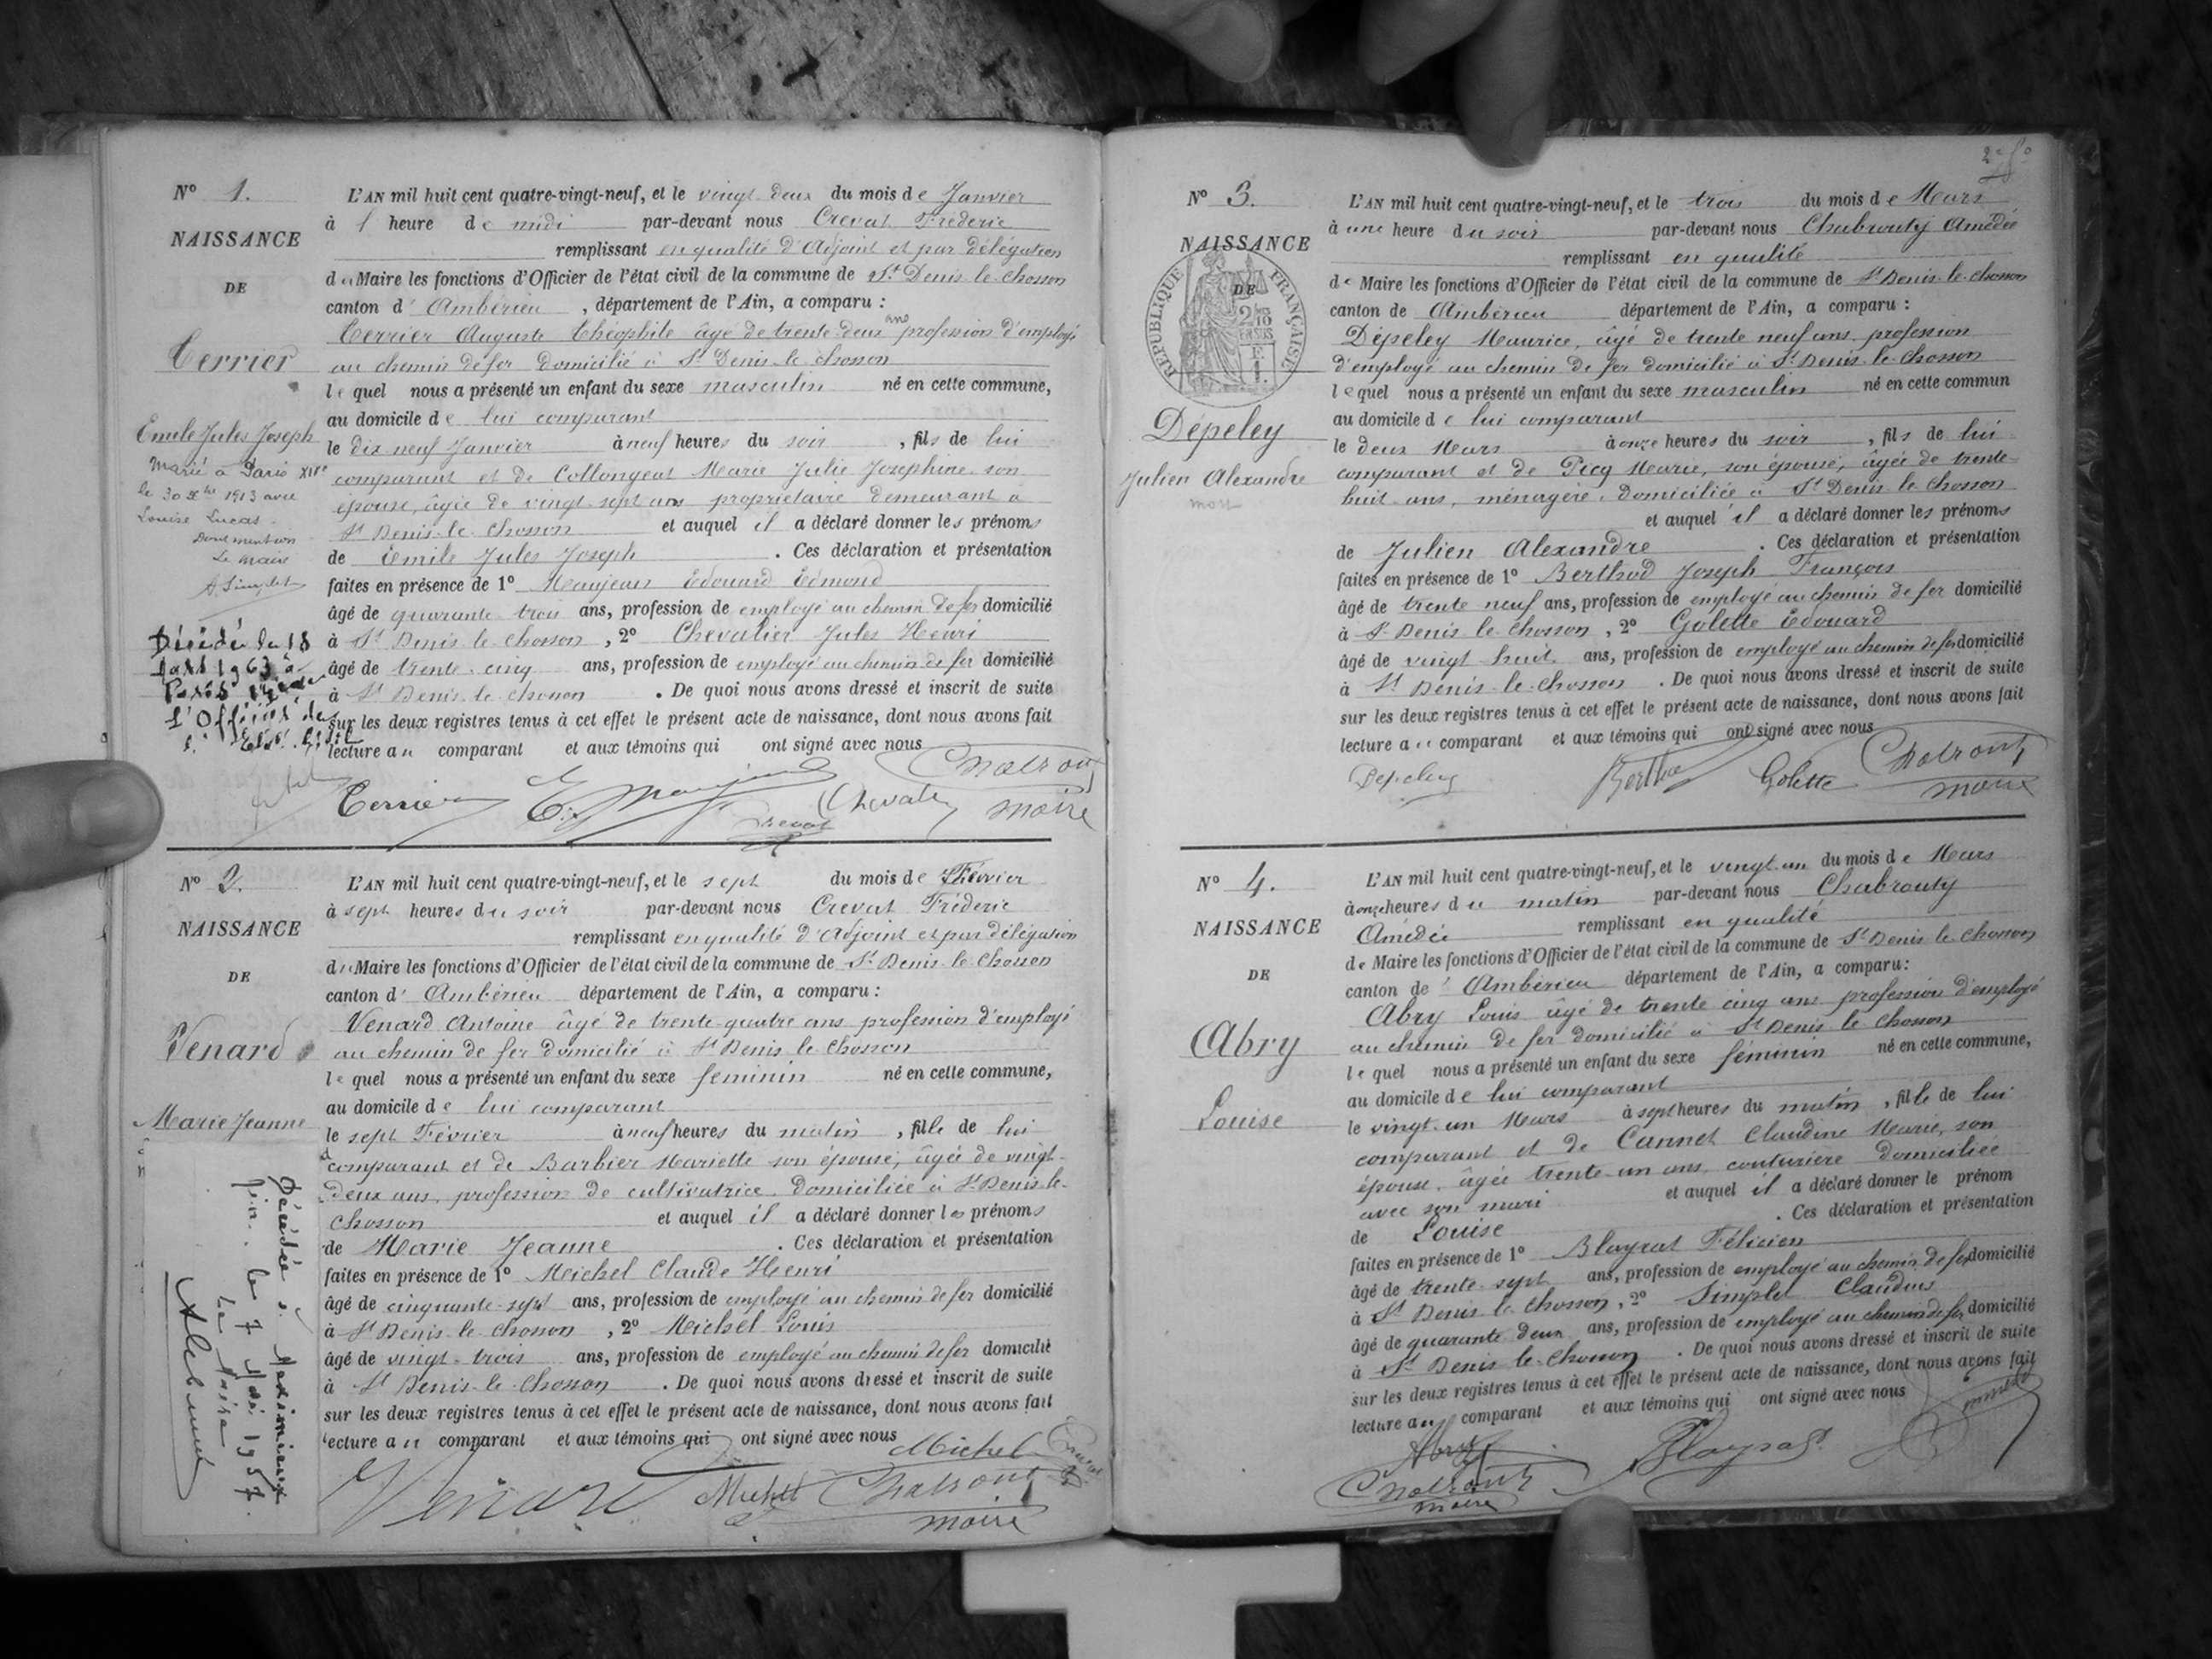 N° 1.
NAISSANCE
DE
Terrier
Emile Jules Joseph
Marié à Paris XIVe
le 30 Xbre 1913 avec
Louise Lucas
Dont mention
Le Maire
Décédé le 18
1963 à
Paris
L'Officier de
L'AN mil huit cent quatre-vingt-neuf, et le vingt deux du mois de Janvier
à 1 heure de midi par-devant nous Crevat Frédéric
remplissant en qualité d'Adjoint et par délégation
du Maire les fonctions d'Officier de l'état civil de la commune de St Denis le Chosson
canton d' Ambérieu , département de l'Ain, a comparu :
Terrier Auguste Théophile âgé de trente deux ans profession d'employé
au chemin de fer domicilié à St Denis le chosson
lequel nous a présenté un enfant du sexe masculin né en cette commune,
au domicile de lui comparant
le dix neuf Janvier à neuf heures du soir , fils de lui
comparant et de Collongeat Marie Julie Josephine son
épouse, âgée de vingt sept ans propriétaire demeurant à
St Denis le Chosson et auquel il a déclaré donner les prénoms
de Emile Jules Joseph . Ces déclaration et présentation
faites en présence de 1° Maujean Edouard Edmond
âgé de quarante trois ans, profession de employé au chemin de fer domicilié
à St Denis le Chosson , 2° Chevalier Jules Henri
âgé de trente cinq ans, profession de employé au chemin de fer domicilié
à St Denis le chosson . De quoi nous avons dressé et inscrit de suite
sur les deux registres tenus à cet effet le présent acte de naissance, dont nous avons fait
lecture au comparant et aux témoins qui ont signé avec nous
Terrier Chevalier Crevat maire
N° 2.
NAISSANCE
DE
Venard
Marie Jeanne
Décédée à Meximieux
le 7 Mai 1957.
Le Maire
L'AN mil huit cent quatre-vingt-neuf, et le sept du mois de Février
à sept heures du soir par-devant nous Crevat Fréderic
remplissant en qualité d'Adjoint et par délégation
du Maire les fonctions d'Officier de l'état civil de la commune de St Denis le Chosson
canton d' Ambérieu département de l'Ain, a comparu :
Venard Antoine âgé de trente quatre ans profession d'employé
au chemin de fer domicilié à St Denis le Chosson
lequel nous a présenté un enfant du sexe feminin né en cette commune,
au domicile de lui comparant
le sept Février à neuf heures du matin , fille de lui
comparant et de Barbier Mariette son épouse, âgée de vingt-
deux ans, profession de cultivatrice, domiciliée à St Denis-le-
Chosson et auquel il a déclaré donner les prénoms
de Marie Jeanne . Ces déclaration et présentation
faites en présence de 1° Michel Claude Henri
âgé de cinquante sept ans, profession de employé au chemin de fer domicilié
à St Denis le chosson , 2° Michel Louis
âgé de vingt trois ans, profession de employé au chemin de fer domicilié
à St Denis le Chosson . De quoi nous avons dressé et inscrit de suite
sur les deux registres tenus à cet effet le présent acte de naissance, dont nous avons fait
lecture au comparant et aux témoins qui ont signé avec nous
Michel
Venard Michel maire
N° 3.
NAISSANCE
DE
RÉPUBLIQUE FRANÇAISE
Dépeley
Julien Alexandre
mort
L'AN mil huit cent quatre-vingt-neuf, et le trois du mois de Mars
à une heure du soir par-devant nous Chabrouty Amédée
remplissant en qualité
de Maire les fonctions d'Officier de l'état civil de la commune de St Denis le chosson
canton de Ambérieu département de l'Ain, a comparu :
Dépeley Maurice, âgé de trente neuf ans, profession
d'employé au chemin de fer domicilié à St Denis le Chosson
lequel nous a présenté un enfant du sexe masculin né en cette commun
au domicile de lui comparant
le deux Mars à onze heures du soir , fils de lui
comparant et de Picq Marie, son épouse, âgée de trente
huit ans, ménagère, domiciliée à St Denis le Chosson
et auquel il a déclaré donner les prénoms
de Julien Alexandre . Ces déclaration et présentation
faites en présence de 1° Berthod Joseph François
âgé de trente neuf ans, profession de employé au chemin de fer domicilié
à St Denis le chosson , 2° Golette Edouard
âgé de vingt huit ans, profession de employé au chemin de fer domicilié
à St Denis le Chosson . De quoi nous avons dressé et inscrit de suite
sur les deux registres tenus à cet effet le présent acte de naissance, dont nous avons fait
lecture au comparant et aux témoins qui ont signé avec nous
Depeley Golette maire
N° 4.
NAISSANCE
DE
Abry
Louise
L'AN mil huit cent quatre-vingt-neuf, et le vingt un du mois de Mars
à onze heures du matin par-devant nous Chabrouty
Amédée remplissant en qualité
de Maire les fonctions d'Officier de l'état civil de la commune de St Denis le Chosson
canton de Ambérieu département de l'Ain, a comparu:
Abry Louis âgé de trente cinq ans profession d'employé
au chemin de fer domicilié à St Denis le Chosson
lequel nous a présenté un enfant du sexe féminin né en cette commune,
au domicile de lui comparant
le vingt un Mars à sept heures du matin , fille de lui
comparant et de Cannet Claudine Marie, son
épouse, âgée trente un ans, couturière domiciliée
avec son mari et auquel il a déclaré donner le prénom
de Louise . Ces déclaration et présentation
faites en présence de 1° Blayrat Félicien
âgé de trente sept ans, profession de employé au chemin de fer domicilié
à St Denis le Chosson , 2° Simplet Claudius
âgé de quarante deux ans, profession de employé au chemin de fer domicilié
à St Denis le Chosson . De quoi nous avons dressé et inscrit de suite
sur les deux registres tenus à cet effet le présent acte de naissance, dont nous avons fait
lecture au comparant et aux témoins qui ont signé avec nous
Abry Blayrat
maire